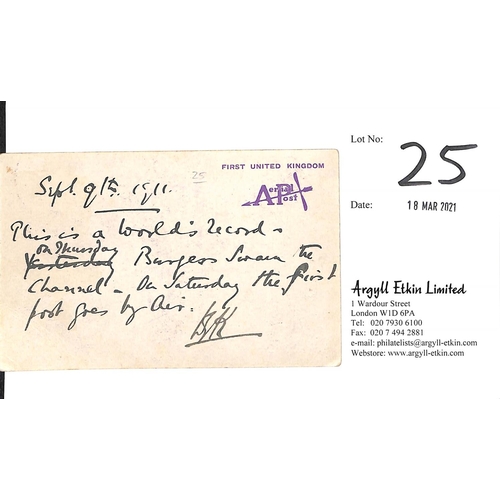 Lot No: 25
Date: 18 MAR 2021
Argyll Etkin Limited
1 Wardour Street
London W1D 6PA
Tel: 020 7930 6100
Fax: 020 7 494 2881
e-mail: philatelists@argyll-etkin.com
Webstore: www.argyll-etkin.com
25
FIRST UNITED KINGDOM
Aerial
Post
Sept. 9th. 1911.
This is a World's Record -
on Thursday
Yesterday Burgess Swam the
Channel - On Saturday the first
post goes by Air.